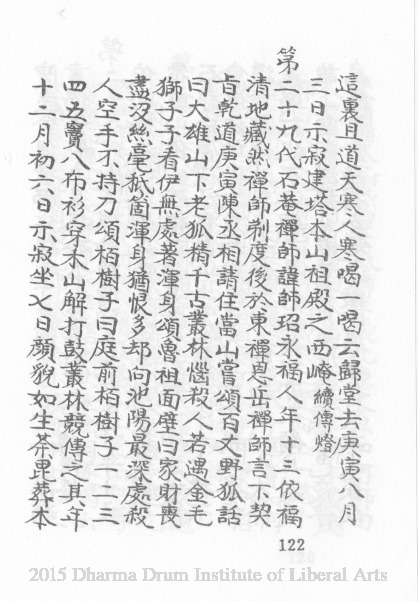 這裏且道天寒人寒喝一喝云歸堂去庚寅八月
三日示寂建塔本山祖殿之西崦續傳燈
第二十九代石菴禪師諱師玿永福人年十三依福
清地藏㷡禪師剃度後於東禪恩岳禪師言下契
旨乾道庚寅陳丞相請住當山嘗頌百丈野狐話
曰大雄山下老狐精千古叢林惱殺人若遇金毛
獅子子看伊無處著渾身頌魯祖面壁曰家財喪
盡沒絲毫秖箇渾身猶恨多却向池陽最深處殺
人空手不持刀頌栢樹子曰庭前栢樹子一二三
四五竇八布衫穿禾山解打鼓叢林競傳之其年
十二月初六日示寂坐七日顏貌如生茶毘葬本
122
2015 Dharma Drum Institute of Liberal Arts